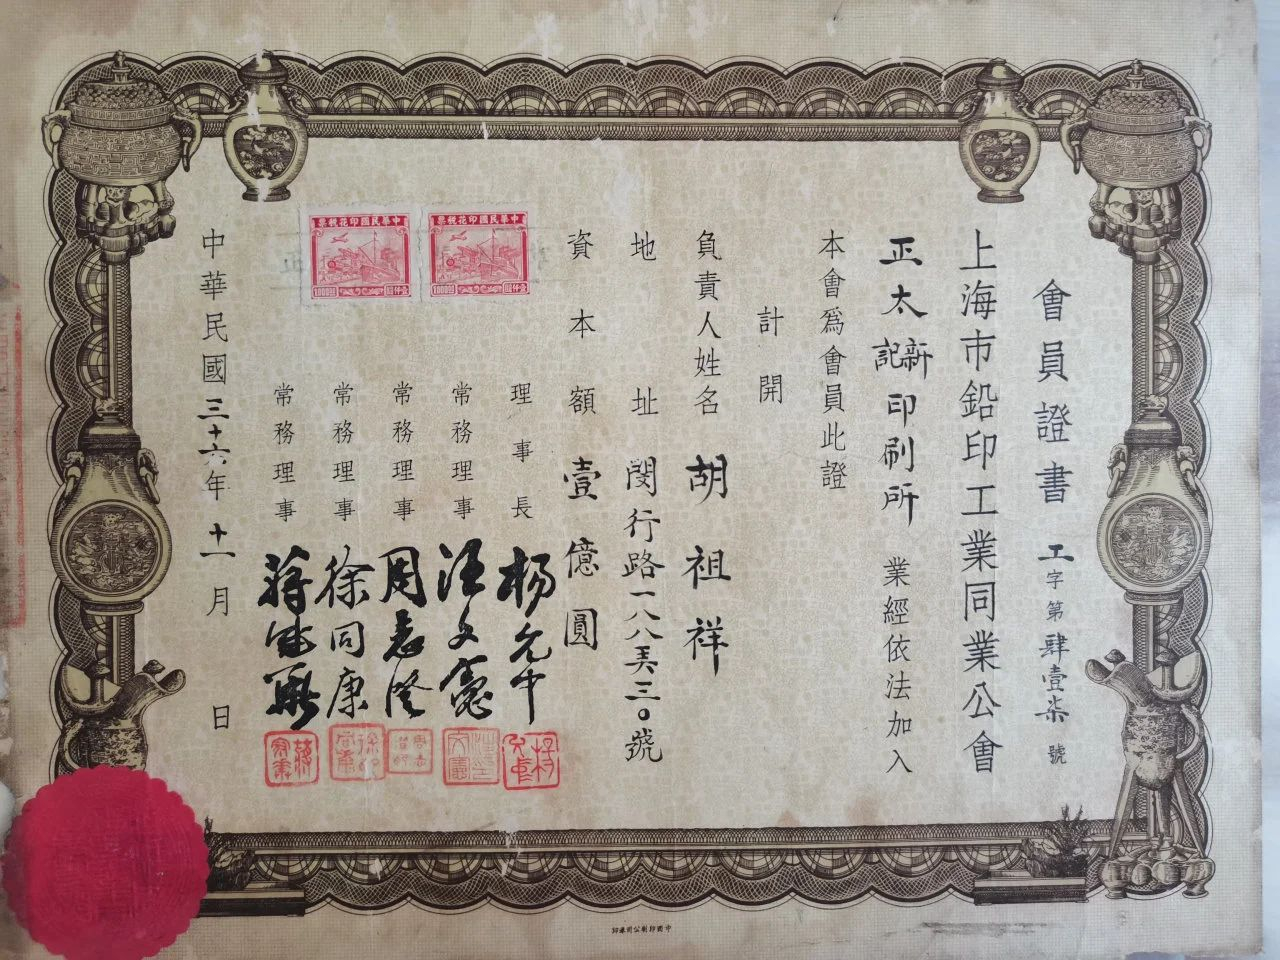 會員證書 工字第肆壹柒號
上海市鉛印工業同業公會
正太新記印刷所 業經依法加入
本會爲會員此證
計開
負責人姓名 胡祖祥
地址 閔行路一八八弄三〇號
資本額 壹億圓
理事長 楊允中
常務理事 汪文憲
常務理事 周志澄
常務理事 徐同康
常務理事 蔣
中華民國三十六年十一月 日
中華民國印花稅票
1000
壹仟圓
中華民國印花稅票
1000
壹仟圓
中國印刷公司承印